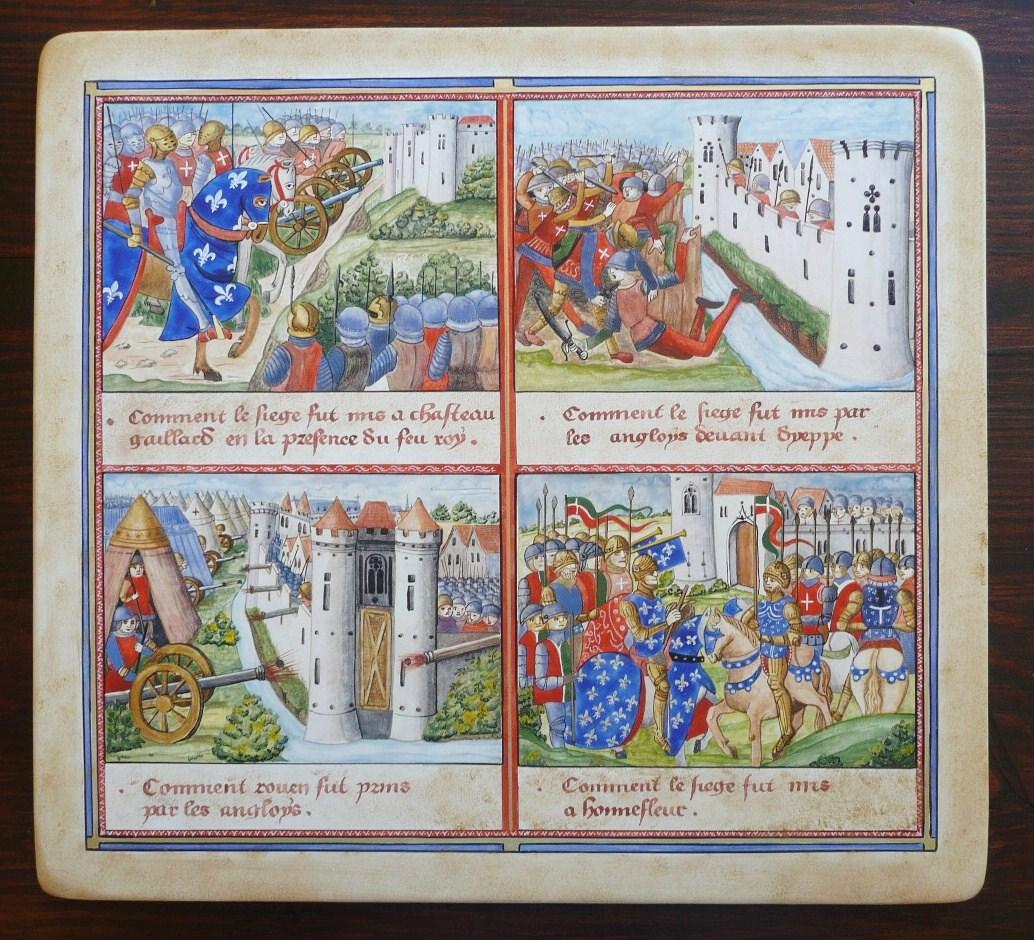 . Comment le siege fut mis a chasteau
gaillard en la presence du feu roy .
. Comment le siege fut mis par
les angloys devant dyeppe .
. Comment rouen fut prins
par les angloys .
. Comment le siege fut mis
a honnefleur .